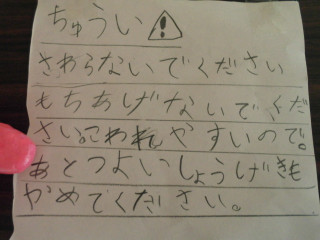 ちゅうい
さわらないでください
もちあげないでくだ
さい。こわれやすいので。
あとつよいしょうげきも
やめてください。